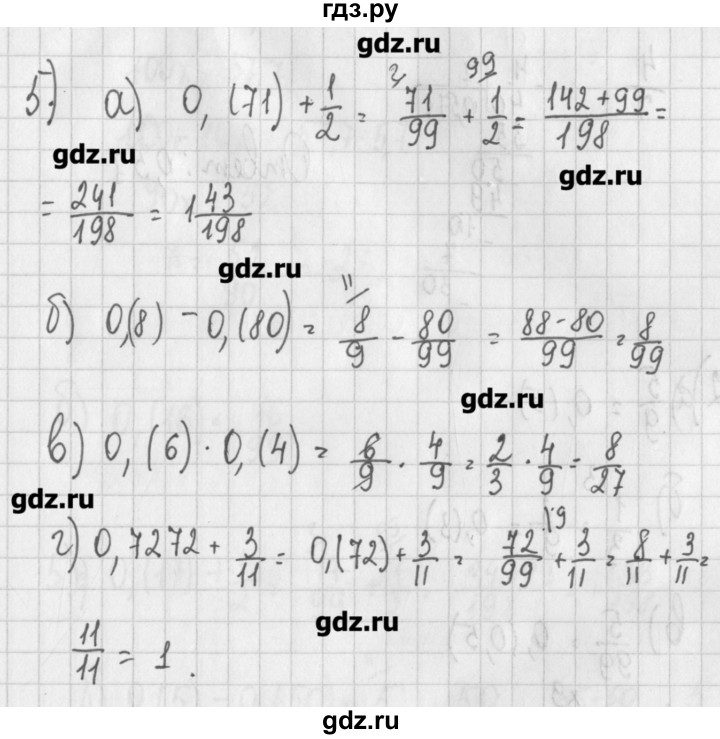 гдз.ру
gdz.ru
5) а) 0,(71) + 1/2 = 71/99 + 1/2 = (142+99)/198 =
gdz.ru
gdz.ru
= 241/198 = 1 43/198
gdz.ru
б) 0,(8) - 0,(80) = 8/9 - 80/99 = (88-80)/99 = 8/99
gdz.ru
в) 0,(6) · 0,(4) = 6/9 · 4/9 = 2/3 · 4/9 = 8/27
gdz.ru
г) 0,7272 + 3/11 = 0,(72) + 3/11 = 72/99 + 3/11 = 8/11 + 3/11 =
gdz.ru
11/11 = 1.
gdz.ru